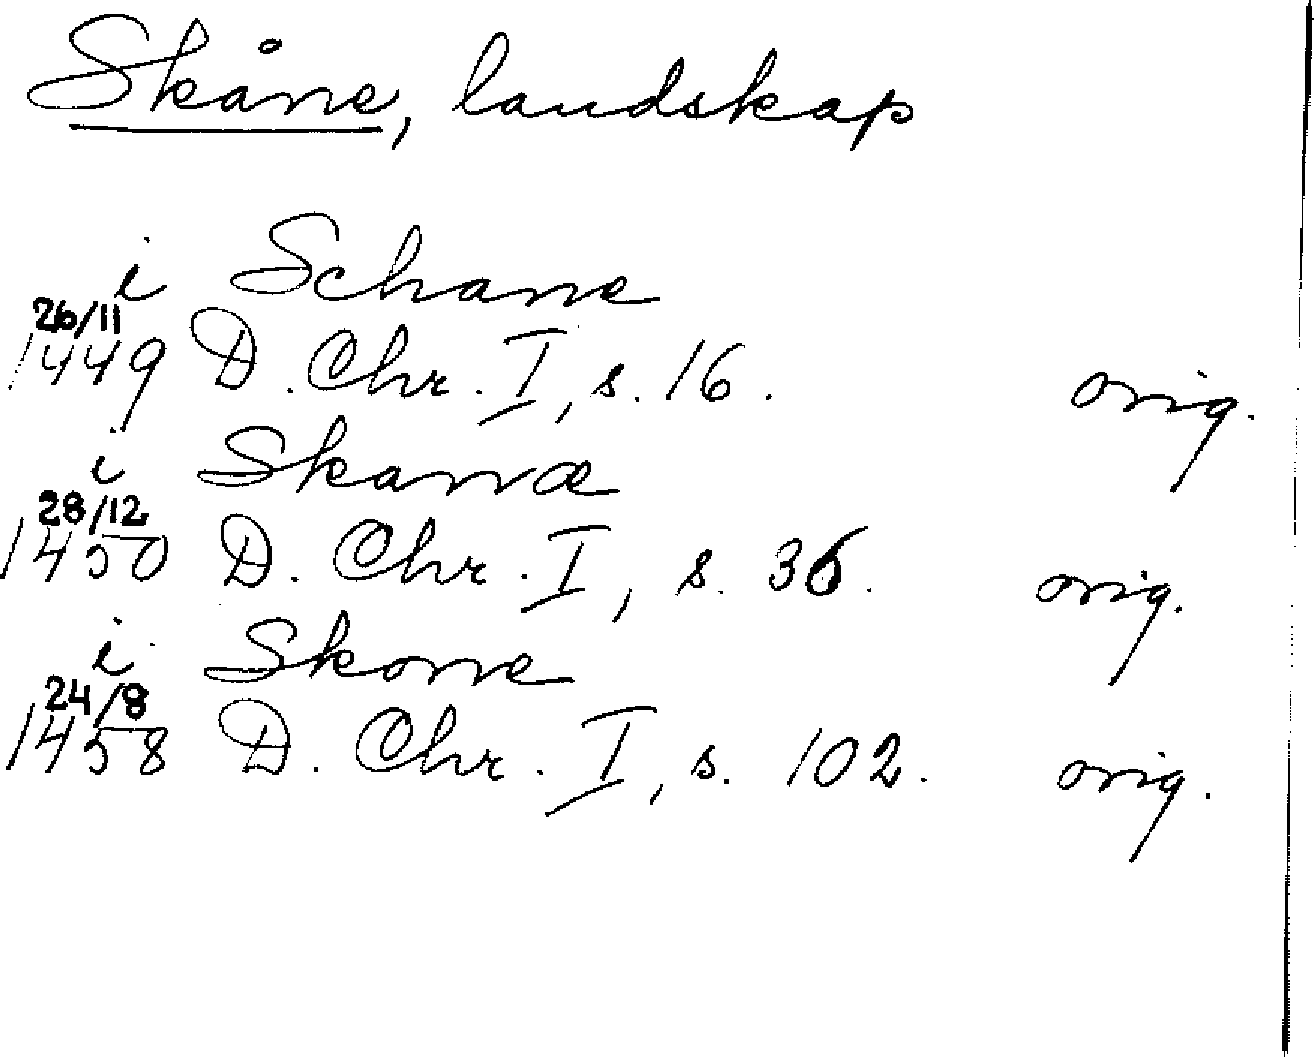 Skåne, landskap
i Schane
26/11
1449 D. Chr. I, s. 16. orig.
i Skanæ
28/12
1450 D. Chr. I, s. 36. orig.
i Skone
24/8
1458 D. Chr. I, s. 102. orig.